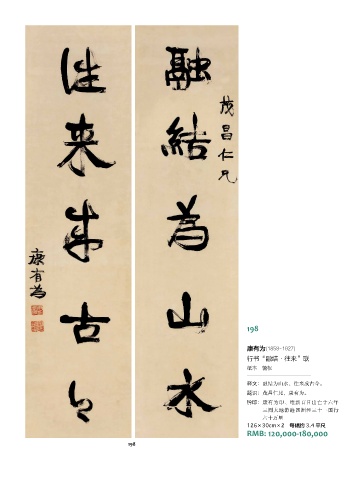 融結為山水
茂昌仁兄
往来成古今
康有為
198
198
康有为(1858-1927)
行书“融结·往来”联
纸本 镜框
释文：融结为山水，往来成古今。
款识：茂昌仁兄，康有为。
钤印：康有为印、维新百日出亡十六年
三周大地游遍四洲经三十一国行
六十万里
126×30cm×2 每幅约 3.4 平尺
RMB: 120,000-180,000